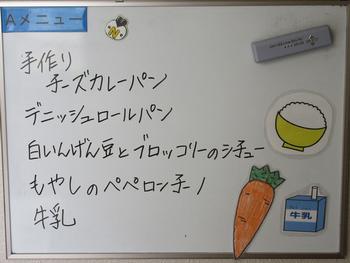 Aメニュー
手作り
チーズカレーパン
デニッシュロールパン
白いんげん豆とブロッコリーのシチュー
もやしのペペロンチーノ
牛乳
牛乳